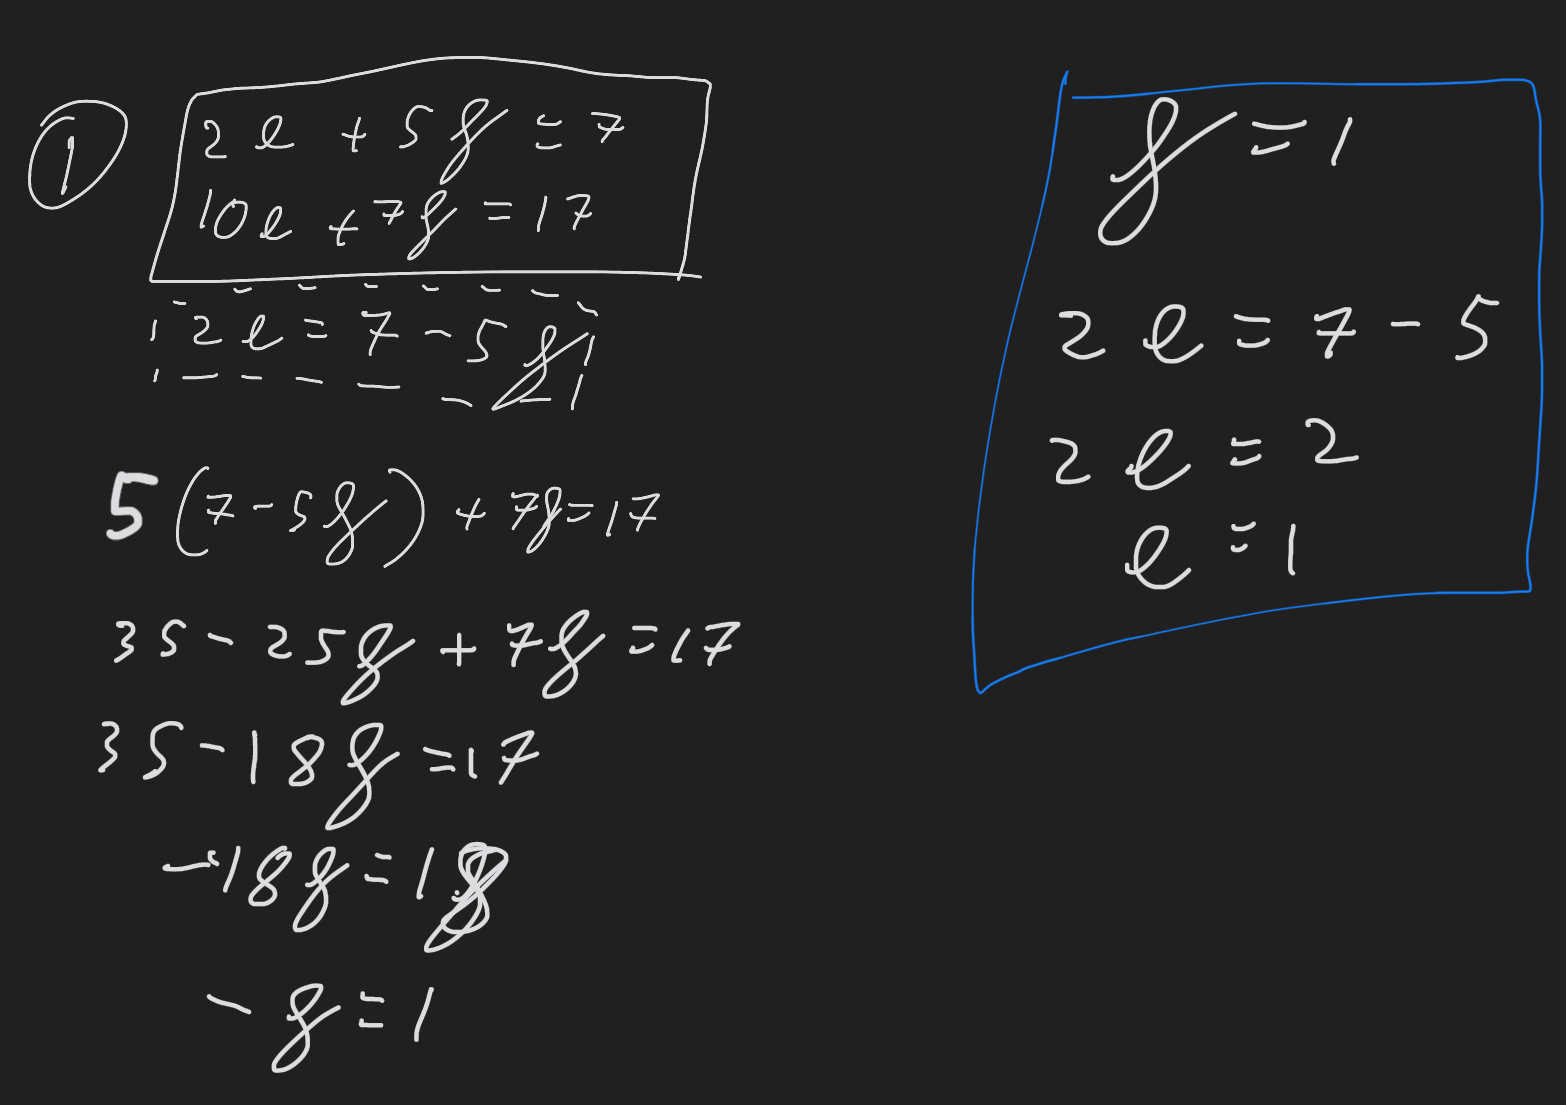 1
2e + 5f = 7
10e + 7f = 17
2e = 7 - 5f
5(7 - 5f) + 7f = 17
35 - 25f + 7f = 17
35 - 18f = 17
-18f = 18
-f = 1
f = 1
2e = 7 - 5
2e = 2
e = 1